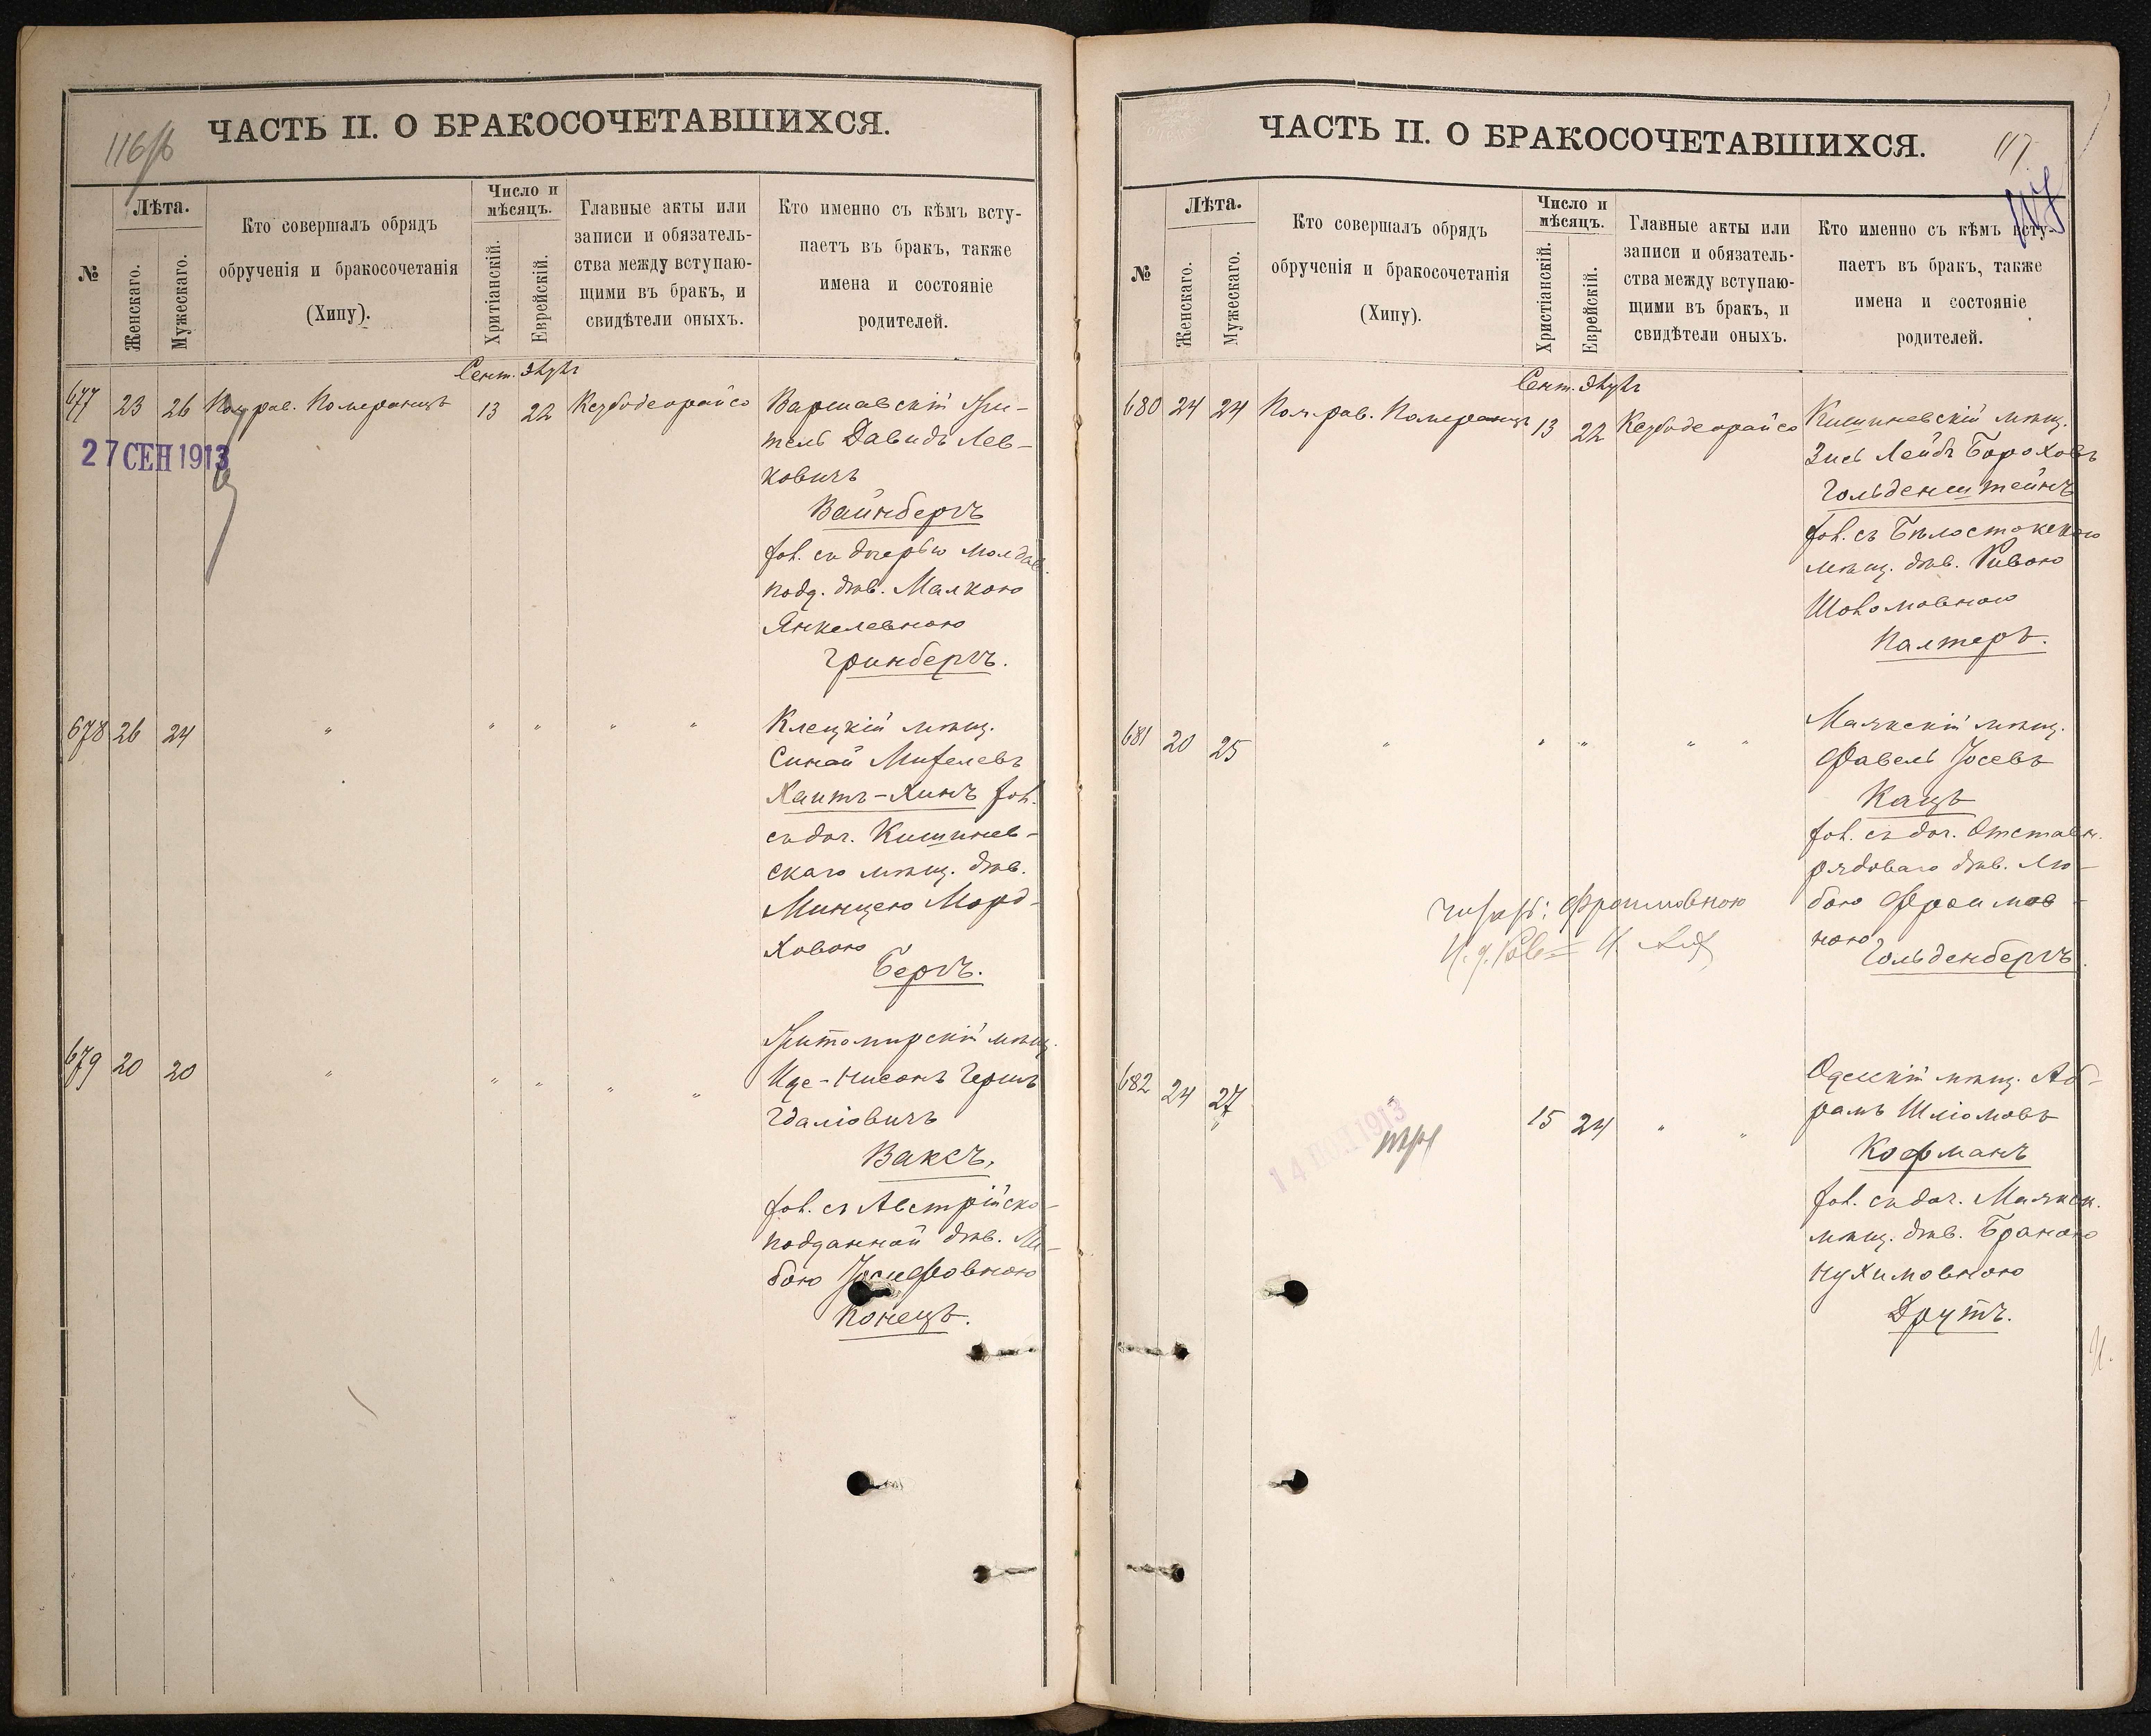 116/б
ЧАСТЬ II. О БРАКОСОЧЕТАВШИХСЯ.
№
Лѣта.
Женскаго.
Мужескаго.
Кто совершалъ обрядъ
обрученія и бракосочетанія
(Хипу).
Число и
мѣсяцъ.
Хритіанскій.
Еврейскій.
Главные акты или
записи и обязатель-
ства между вступаю-
щими въ бракъ, и
свидѣтели оныхъ.
Кто именно съ кѣмъ всту-
паетъ въ бракъ, также
имена и состояніе
родителей.
Сент. Элулъ
677 23 26 Пом. рав. Померанцъ 13 22 Кезубедеорайсо
27 СЕН 1913
Варшавскій Жи-
тель Давидъ Лев-
ковичъ
Вайнбергъ
хол. съ дочерью молдав.
подд. дѣв. Малкою
Янкелевною
Гринбергъ.
678 26 24 " " " " "
Клецкій мѣщ.
Синай Михелевъ
Хаитъ-Хинъ хол.
съ доч. Кишинев-
скаго мѣщ. дѣв.
Минцею Морд-
ховою
Бергъ.
679 20 20 " " " " "
Житомирскій мѣщ.
Иде-Нисонъ Гершъ
Гдаліовичъ
Ваксъ,
хол. съ Австрійско-
подданной дѣв. Ли-
бою Іосифовною
Конецъ.
117
ЧАСТЬ II. О БРАКОСОЧЕТАВШИХСЯ.
№
Лѣта.
Женскаго.
Мужескаго.
Кто совершалъ обрядъ
обрученія и бракосочетанія
(Хипу).
Число и
мѣсяцъ.
Христіанскій.
Еврейскій.
Главные акты или
записи и обязатель-
ства между вступаю-
щими въ бракъ, и
свидѣтели оныхъ.
Кто именно съ кѣмъ всту-
паетъ въ бракъ, также
имена и состояніе
родителей.
Сент. Элулъ
680 24 24 Пом. рав. Померанцъ 13 22 Кезубедеорайсо
Кишиневскій мѣщ.
Зись Лейбъ Бороховъ
Гольденштейнъ
хол. съ Бѣлостокскою
мѣщ. дѣв. Ривою
Шоломовною
Палтеръ.
681 20 25 " " " " "
Маякскій мѣщ.
Фавель Іосевъ
Кацъ
хол. съ доч. Отставн.
рядоваго дѣв. Лю-
бою Фроимов-
ною
Гольденбергъ.
Фроимовною
682 24 27 " 15 24 " "
Одесскій мѣщ. Аб-
рамъ Шліомовъ
Кофманъ
хол. съ доч. Маякск.
мѣщ. дѣв. Браною
Нухимовною
Друтъ.